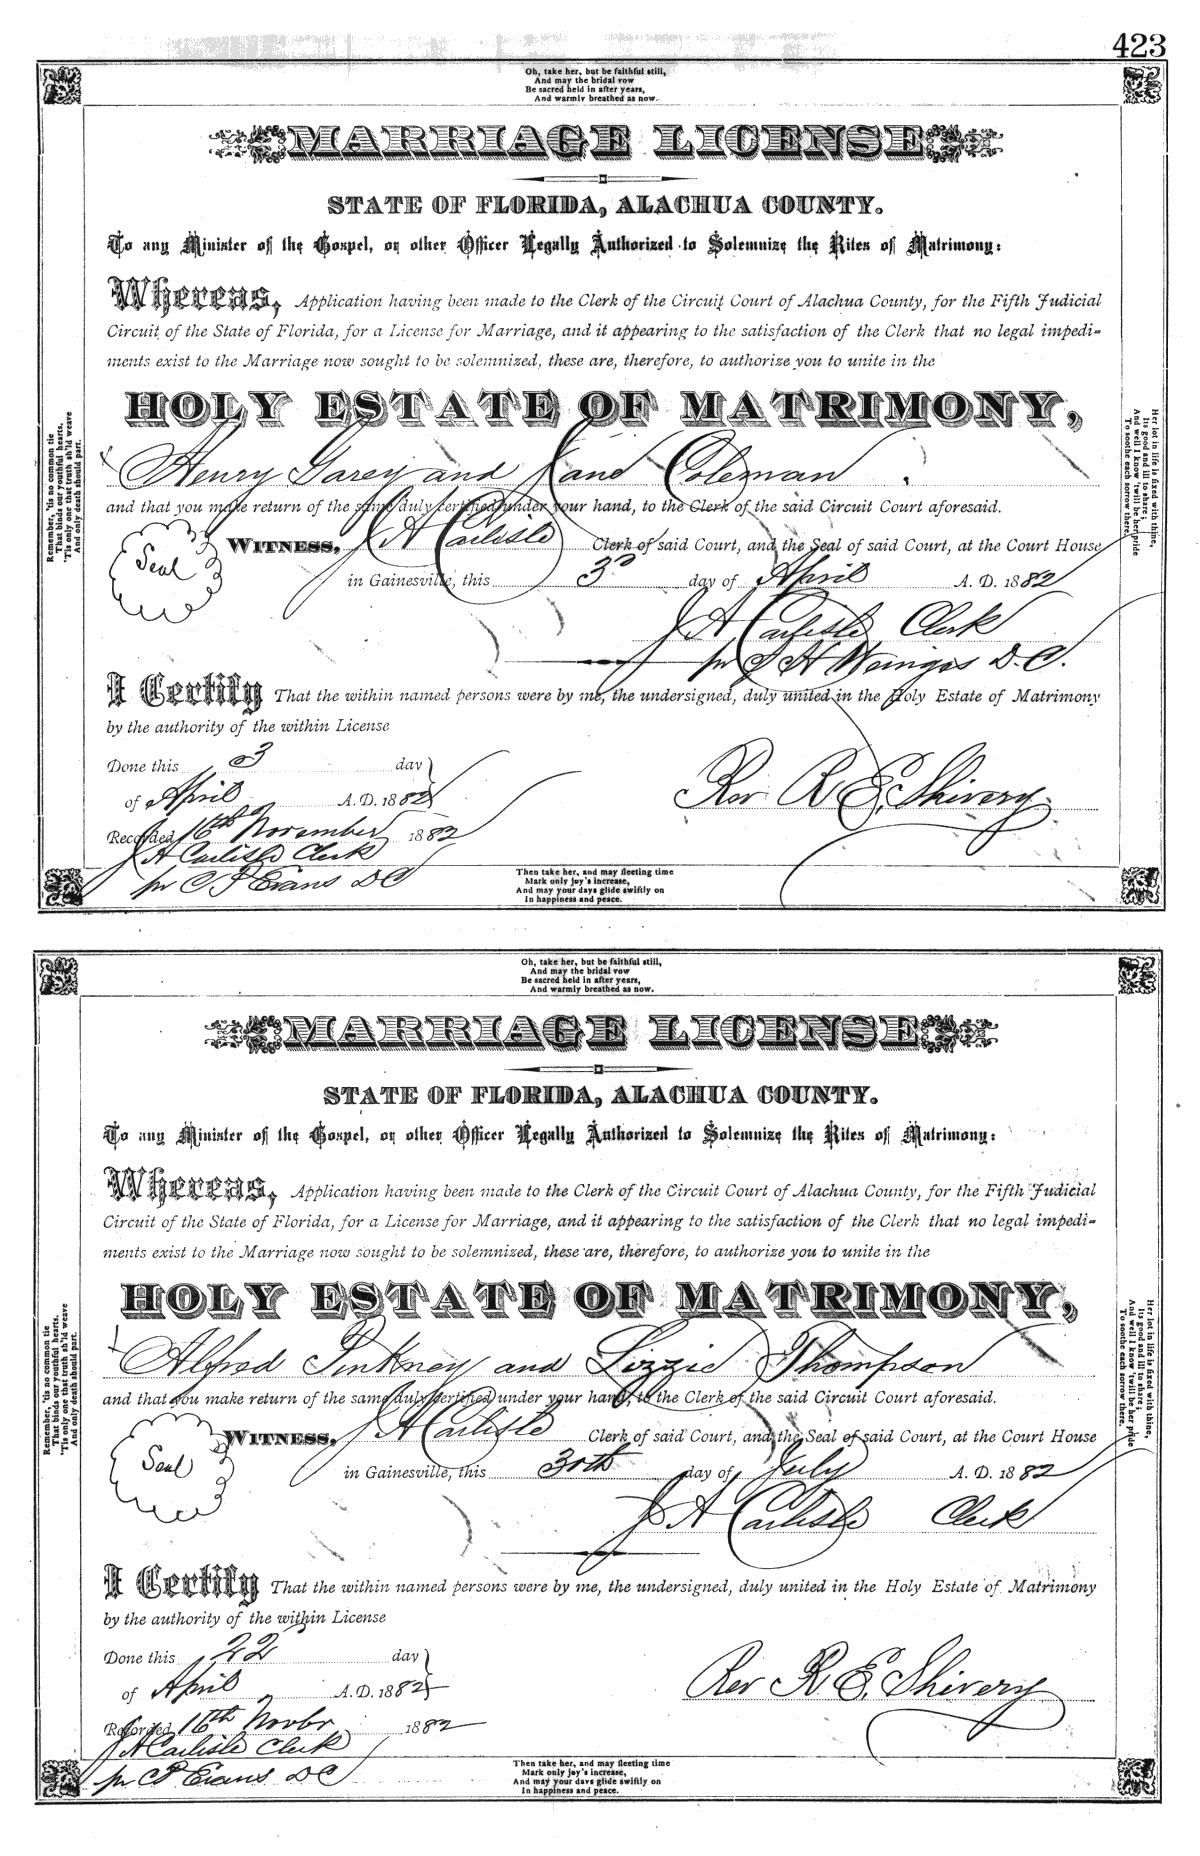 423
Oh, take her, but be faithful still,
And may the bridal vow
Be sacred held in after years,
And warmly breathed as now.
MARRIAGE LICENSE
STATE OF FLORIDA, ALACHUA COUNTY.
To any Minister of the Gospel, or other Officer Legally Authorized to Solemnize the Rites of Matrimony:
Whereas, Application having been made to the Clerk of the Circuit Court of Alachua County, for the Fifth Judicial
Circuit of the State of Florida, for a License for Marriage, and it appearing to the satisfaction of the Clerk that no legal impedi-
ments exist to the Marriage now sought to be solemnized, these are, therefore, to authorize you to unite in the
HOLY ESTATE OF MATRIMONY,
Henry Garey and Jane Coleman
and that you make return of the same duly certified under your hand, to the Clerk of the said Circuit Court aforesaid.
Seal
WITNESS, J A Carlisle Clerk of said Court, and the Seal of said Court, at the Court House
in Gainesville, this 3rd day of April A. D. 1882
J A Carlisle Clerk
pr S H Wienges D.C.
I Certify That the within named persons were by me, the undersigned, duly united in the Holy Estate of Matrimony
by the authority of the within License
Done this 3 day
of April A. D. 1882
Rev R E. Shivery
Recorded 16th November 1882
J A Carlisle Clerk
pr C P Evans DC
Remember, 'tis no common tie
That binds our youthful hearts,
'Tis only one that truth sh'ld weave
And only death should part.
Her lot in life is fixed with thine,
Its good and ill to share;
And well I know 'twill be her pride
To soothe each sorrow there.
Then take her, and may fleeting time
Mark only joy's increase,
And may your days glide swiftly on
In happiness and peace.
Oh, take her, but be faithful still,
And may the bridal vow
Be sacred held in after years,
And warmly breathed as now.
MARRIAGE LICENSE
STATE OF FLORIDA, ALACHUA COUNTY.
To any Minister of the Gospel, or other Officer Legally Authorized to Solemnize the Rites of Matrimony:
Whereas, Application having been made to the Clerk of the Circuit Court of Alachua County, for the Fifth Judicial
Circuit of the State of Florida, for a License for Marriage, and it appearing to the satisfaction of the Clerk that no legal impedi-
ments exist to the Marriage now sought to be solemnized, these are, therefore, to authorize you to unite in the
HOLY ESTATE OF MATRIMONY,
Alfred Pinkney and Lizzie Thompson
and that you make return of the same duly certified under your hand, to the Clerk of the said Circuit Court aforesaid.
Seal
WITNESS, J A Carlisle Clerk of said Court, and the Seal of said Court, at the Court House
in Gainesville, this 30th day of July A. D. 1882
J A Carlisle Clerk
I Certify That the within named persons were by me, the undersigned, duly united in the Holy Estate of Matrimony
by the authority of the within License
Done this 22 day
of April A. D. 1882
Rev R. E. Shivery
Recorded 16th Novbr 1882
J A Carlisle Clerk
pr C P Evans DC
Remember, 'tis no common tie
That binds our youthful hearts,
'Tis only one that truth sh'ld weave
And only death should part.
Her lot in life is fixed with thine,
Its good and ill to share;
And well I know 'twill be her pride
To soothe each sorrow there.
Then take her, and may fleeting time
Mark only joy's increase,
And may your days glide swiftly on
In happiness and peace.